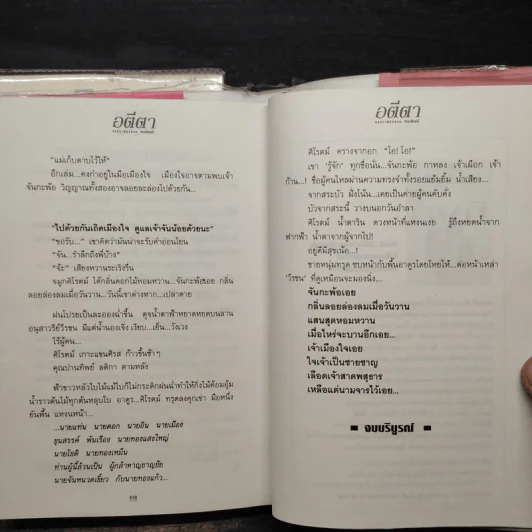 อตีตา
"แม่เก็บดาบไว้ให้"
อีกเล่ม...คงกำอยู่ในมือเมืองใจ เมืองใจอาจตามพบเจ้า
จันกะพ้อ วิญญาณทั้งสองอาจลอยละล่องไปด้วยกัน...
"ไปด้วยกันเถิดเมืองใจ ดูแลเจ้าจันน้อยด้วยนะ"
"ขอรับ..." เขาคิดว่ามันน่าจะรับคำอ่อนโยน
"จัน...รำลึกถึงพี่บ้าง"
"จ้ะ" เสียงหวานระเริงรื่น
จมูกศิโรตม์ ได้กลิ่นดอกไม้หอมหวาน...จันกะพ้อเอย กลิ่น
ลอยล่องลมเมื่อวันวาน...วันนี้เขาต่างหาก...เปล่าดาย
ฝนโปรยเป็นละอองฉ่ำชื้น ดุจน้ำตาฟ้าหยาดหยดบนลาน
อนุสาวรีย์วีรชน มีแต่น้ำนองเจิง เงียบ...เย็น...วังเวง
ไร้ผู้คน...
ศิโรตม์ เกาะแขนศิรส ก้าวขึ้นช้าๆ
คุณปานทิพย์ ลติกา ตามหลัง
ฟ้าขาวหลัวใบไม้แม้ใบก็ไม่กระดิกฝนฉ่ำทำให้กิ่งไม้ค้อมอุ้ม
น้ำราวต้นไม้ทุกต้นหลุบใบ อาดูร...ศิโรตม์ ทรุดลงคุกเข่า มือหนึ่ง
ยันพื้น แหงนหน้า...
...นายแท่น นายดอก นายอิน นายเมือง
ขุนสรรค์ พันเรือง นายทองแสงใหญ่
นายโชติ นายทองเหม็น
ท่านผู้นี้ล้วนเป็น ผู้กล้าหาญชาญชัย
นายจันหนวดเขี้ยว กับนายทองแก้ว...
อตีตา
ศิโรตม์ ครางจากอก "โอ! โอ!"
เขา 'รู้จัก' ทุกชื่อนั่น...จันกะพ้อ กาหลง เจ้าเผือก เจ้า
ก้าน...! ชื่อผู้คนไหลผ่านความทรงจำทั้งรอยแย้มยิ้ม น้ำเสียง...
จากสระบัว ฝั่งโน้น...เคยเป็นค่ายผู้คนคับคั่ง
บัวจากสระนี้ วางบนอกวันอำลา
ศิโรตม์ น้ำตาริน ดวงหน้าที่แหงนเงย รู้ถึงหยดน้ำจาก
ฟากฟ้า น้ำตาจากผู้จากไป!
อยู่ดีมีสุขเน้อ...!
ชายหนุ่มทรุด ซบหน้ากับพื้นอาดูรโดยไทยให้...ต่อหน้าเหล่า
'วีรชน' ที่ดูเหมือนจะมองนิ่ง...
จันกะพ้อเอย
กลิ่นลอยล่องลมเมื่อวันวาน
แสนสุดหอมหวาน
เมื่อไหร่จะบานอีกเอย...
เจ้าเมืองใจเอย
ใจเจ้าเป็นชายชาญ
เลือดเจ้าสาดพสุธาร
เหลือแต่นามจารไว้เอย...
จบบริบูรณ์